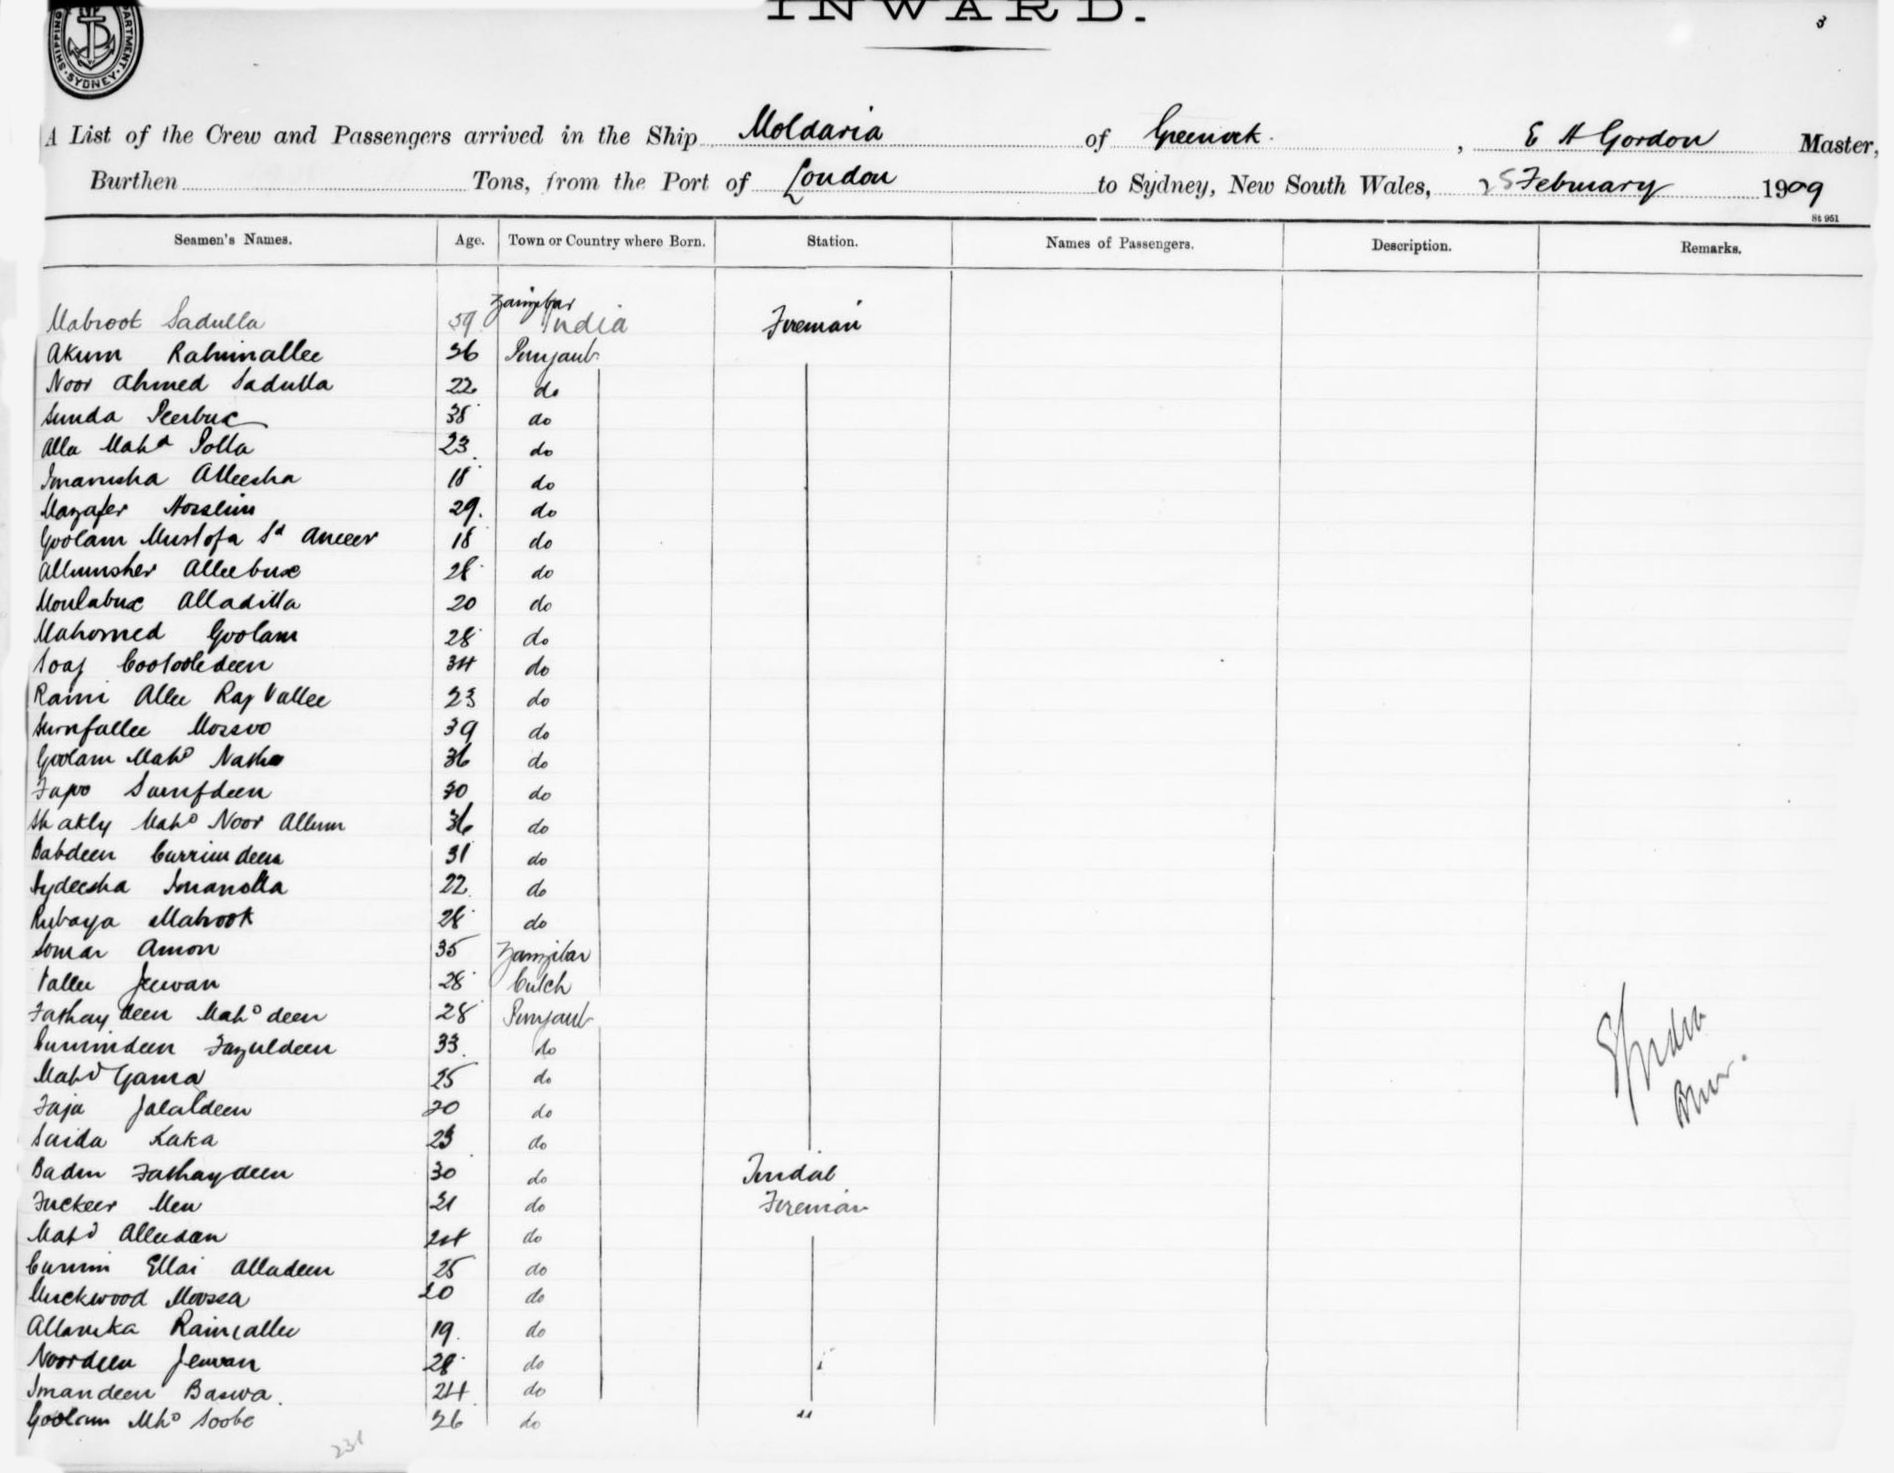 INWARD.
3
SHIPPING DEPARTMENT SYDNEY
A List of the Crew and Passengers arrived in the Ship Moldavia of Greenock, E H Gordon Master,
Burthen Tons, from the Port of London to Sydney, New South Wales, 25 February 1909
St 951
Seamen's Names. Age. Town or Country where Born. Station. Names of Passengers. Description. Remarks.
Zanzibar
Mabrook Sadulla 39 India Fireman
Akum Rahimallee 36 Punjaub
Noor Ahmed Sadulla 22 do
Sunda Peerbux 38 do
Alla Mahd Polla 23 do
Imamsha Alleesha 18 do
Mazafer Hossein 29. do
Goolam Mustofa Sd Ameer 18 do
Allumsher Alleebux 28 do
Moulabux Alladitta 20 do
Mahomed Goolam 28 do
Cootoobedeen 34 do
Allee 23 do
Mossoo 39 do
Goolam Mahd 36 do
30 do
Mahd Noor Allum 36 do
Babdeen Currimdeen 31 do
Hydersha Imamolla 22 do
Rubaya Mabrook 28 do
Somar Amon 35 Zanzibar
Vallee Jeewan 28 Cutch
Fathaydeen Mahd deen 28 Punjaub
Currimdeen Fazuldeen 33. do
Mahd Gama 25 do
Faja Jalaldeen 20 do
Saida Kaka 23 do
Baden Fathaydeen 30 do Tindal
Fuckeer Men 21 do Fireman
Mahd Alleedan 24 do
Currim Ellai Alladeen 25 do
Muckwood Moosea 20 do
Raimallee 19. do
Noordeen Jeewan 28 do
Imandeen Baswa. 24 do
Goolam Mhd Soobe 26 do "
231